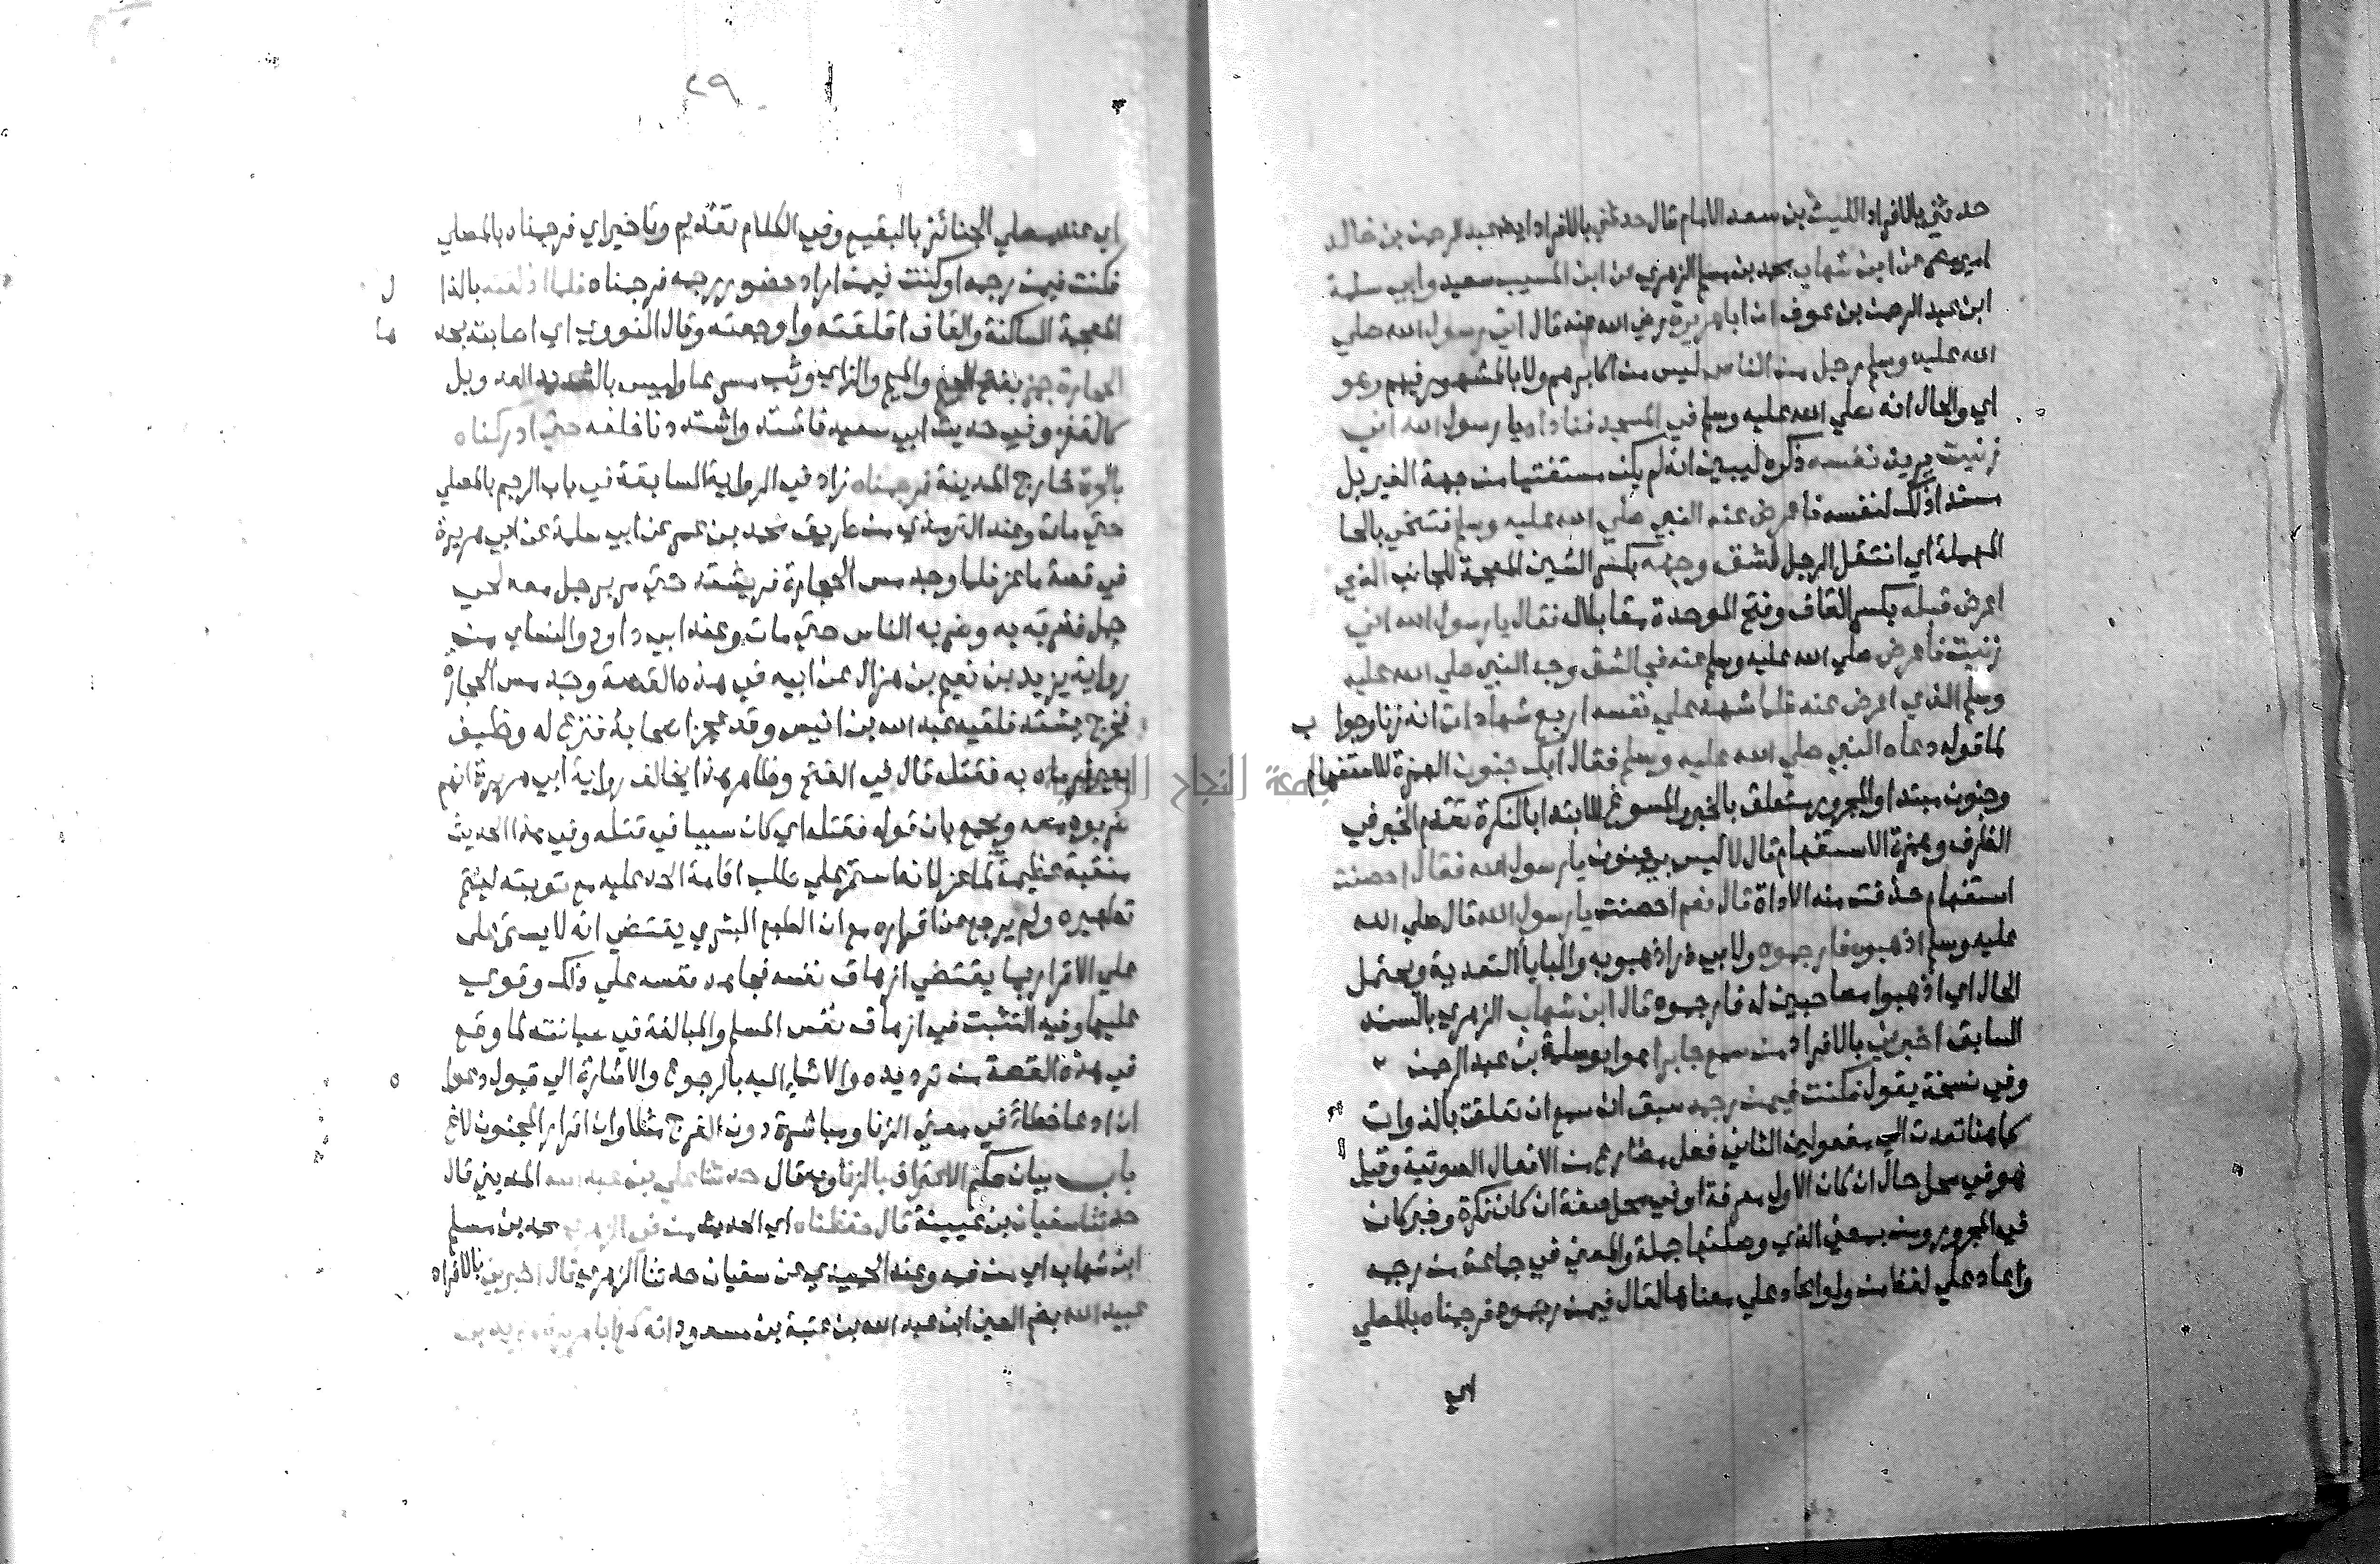 حدثني بالافراد الليث بن سعد الامام قال حدثني بالافراد ايضا عبد الرحمن بن خالد
اميرمصر عن ابن شهاب محمد بن مسلم الزهري عن ابن المسيب سعيد وابي سلمة
ابن عبد الرحمن بن عوف ان ابا هريرة رضي الله عنه قال اتى رسول الله صلي
الله عليه وسلم رجل من الناس ليس من اكابرهم ولا بالمشهور فيهم وهو
اي والحال انه صلي الله عليه وسلم في المسجد فناداه يا رسول الله اني
زنيت يريد نفسه ذكره ليبين انه لم يكن مستفتيا من جهة الغير بل
مسندا ذلك لنفسه فاعرض عنه النبي صلي الله عليه وسلم فتنحي بالحا
المهملة اي انتقل الرجل لشق وجهه بكسر الشين المعجمة للجانب الذي
اعرض قبله بكسر القاف وفتح الموحدة مقابلاله فقال يا رسول الله اني
زنيت فاعرض صلي الله عليه وسلم عنه فجا لشق وجه النبي صلي الله عليه
وسلم الذي اعرض عنه فلما شهد علي نفسه اربع شهادات انه زنا وجوا ب
لما قوله دعاه النبي صلي الله عليه وسلم فقال ابك جنون الهمزة للاستفهام
وجنون مبتدا والمجرور متعلق بالخبر والمسوغ للابتدا بالنكرة تقدم الخبر في
الظرف وهمزة الاستفهام قال لا ليس بي جنون يا رسول الله فقال احصنت
استفهام حذفت منه الاداة قال نعم احصنت يا رسول الله قال صلي الله
عليه وسلم اذهبوه فارجموه ولابي ذر اذهبوبه والبا يأ التعدية ويحتمل
الحال اي اذهبوا مصاحبين له فارجموه قال ابن شهاب الزهري بالسند
السابق اخبرني بالافراد من سمع جابرا هو ابو سلمة بن عبد الرحمن
وفي نسخة يقول فكنت فيمن رجمه سبق ان سمع ان تعلقت بالذوات
كما هنا تعدت الي مفعولين الثاني فعل مضارع من الافعال الصوتية وقيل
هو في محل حال ان كان الاول معرفة او في محل صفة ان كان نكرة وخبر كان
في المجرور ومن بمعني الذي وصلتها جملة والمعني في جماعة من رجمه
واعاد علي لفظ من ولو اعاد علي معناها لقال فيمن رجموه فرجمناه بالمصلي
اي
٢٩
اي عند مصلي الجنائز بالبقيع وفي الكلام تقديم وتاخير اي فرجمناه بالمصلي
فكنت فيمن رجمه او كنت فيمن اراد حضور رجمه فرجمناه فلما اذلقته بالذا ل
المعجمة الساكنة والقاف اقلقته واوجعته وقال النووي اي اصابته بحد ها
الحجارة جمز بفتح الجيم والميم والزاي وثب مسرعا وليس بالشديد العدو بل
كالقفز وفي حديث ابي سعيد فاشتد واشتددنا خلفه حتي ادركناه
بالحرة خارج المدينة فرجمناه زاد في الرواية السابقة في باب الرجم بالمصلي
حتي مات وعند الترمذي من طريق محمد بن عمر عن ابي سلمة عن ابي هريرة
في قصة ماعز فلما وجد مس الحجارة فر يشتد حتي مر برجل معه لحي
جمل فضربه به وضربه الناس حتي مات وعند ابي داود والنساي من
رواية يزيد بن نعيم بن هزال عن ابيه في هذه القصة وجد مس الحجارة
فخرج يشتد فلقيه عبد الله بن انيس وقد عجز اصحابه فنزع له وظيف
بعير فرماه به فقتله قال في الفتح وظاهر هذا يخالف رواية ابي هريرة انهم
ضربوه معه ويجمع بان قوله فقتله اي كان سببا في قتله وفي هذا الحديث
منقبة عظيمة لماعز لانه استمر علي طلب اقامة الحد عليه مع توبته ليتم
تطهيره ولم يرجع عن اقراره مع ان الطبع البشري يقتضي انه لا يستمر على
علي الاقرار بما يقتضي ازهاق نفسه فجاهد نفسه علي ذلك وقوي
عليها وفيه التثبت في ازهاق نفس المسلم والمبالغة في صيانته لما وقع
في هذه القصة من ترديده والايماء اليه بالرجوع والاشارة الي قبول دعوا ه
ان ادعا خطاء في معني الزنا ومباشرة دون الفرج مثلا وان اقرار المجنون لاغ
باب بيان حكم الاعتراف بالزنا وبه قال حدثنا علي بن عبد الله المديني قال
حدثنا سفيان بن عيينة قال حفظناه اي الحديث من في الزهري محمد بن مسلم
ابن شهاب اي من فيه وعند الحميدي عن سفيان حدثنا الزهري قال اخبرني بالافراد
عبيد الله بضم العين ابن عبد الله بن عتبة بن مسعود انه
جامعة النجاح الوطنية